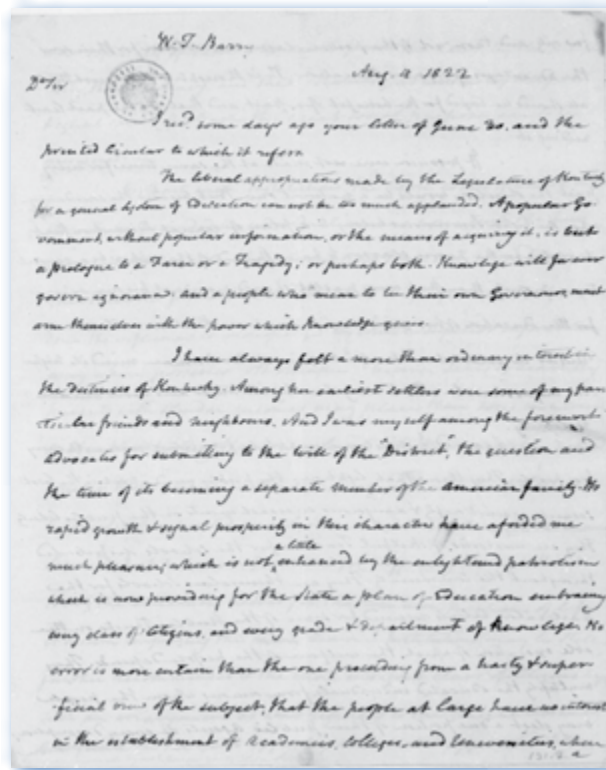 W. T. Barry
Aug. 4 1822
Dr Sir
I recd. some days ago your letter of June 30. and the
printed Circular to which it refers
The liberal appropriations made by the Legislature of Kentucky
for a general System of Education can not be too much applauded. A popular Go-
vernment, without popular information, or the means of acquiring it, is but
a prologue to a Farce or a Tragedy; or perhaps both. Knowledge will for ever
govern ignorance; and a people who mean to be their own Governors, must
arm themselves with the power which knowledge gives.
I have always felt a more than ordinary interest in
the destinies of Kentucky. Among her earliest settlers were some of my par-
ticular friends and neighbours. And I was myself among the foremost
advocates for submitting to the will of the "District", the question and
the time of its becoming a separate member of the American family. Its
rapid growth & signal prosperity in this character have afforded me
a little
much pleasure; which is not enhanced by the enlightened patriotism
which is now providing for the State a plan of Education embracing
every class of Citizens, and every grade & department of Knowledge. No
error is more certain than the one proceeding from a hasty & super-
ficial view of the subject; that the people at large have no interest
in the establishment of Academies, Colleges, and Universities, where
a